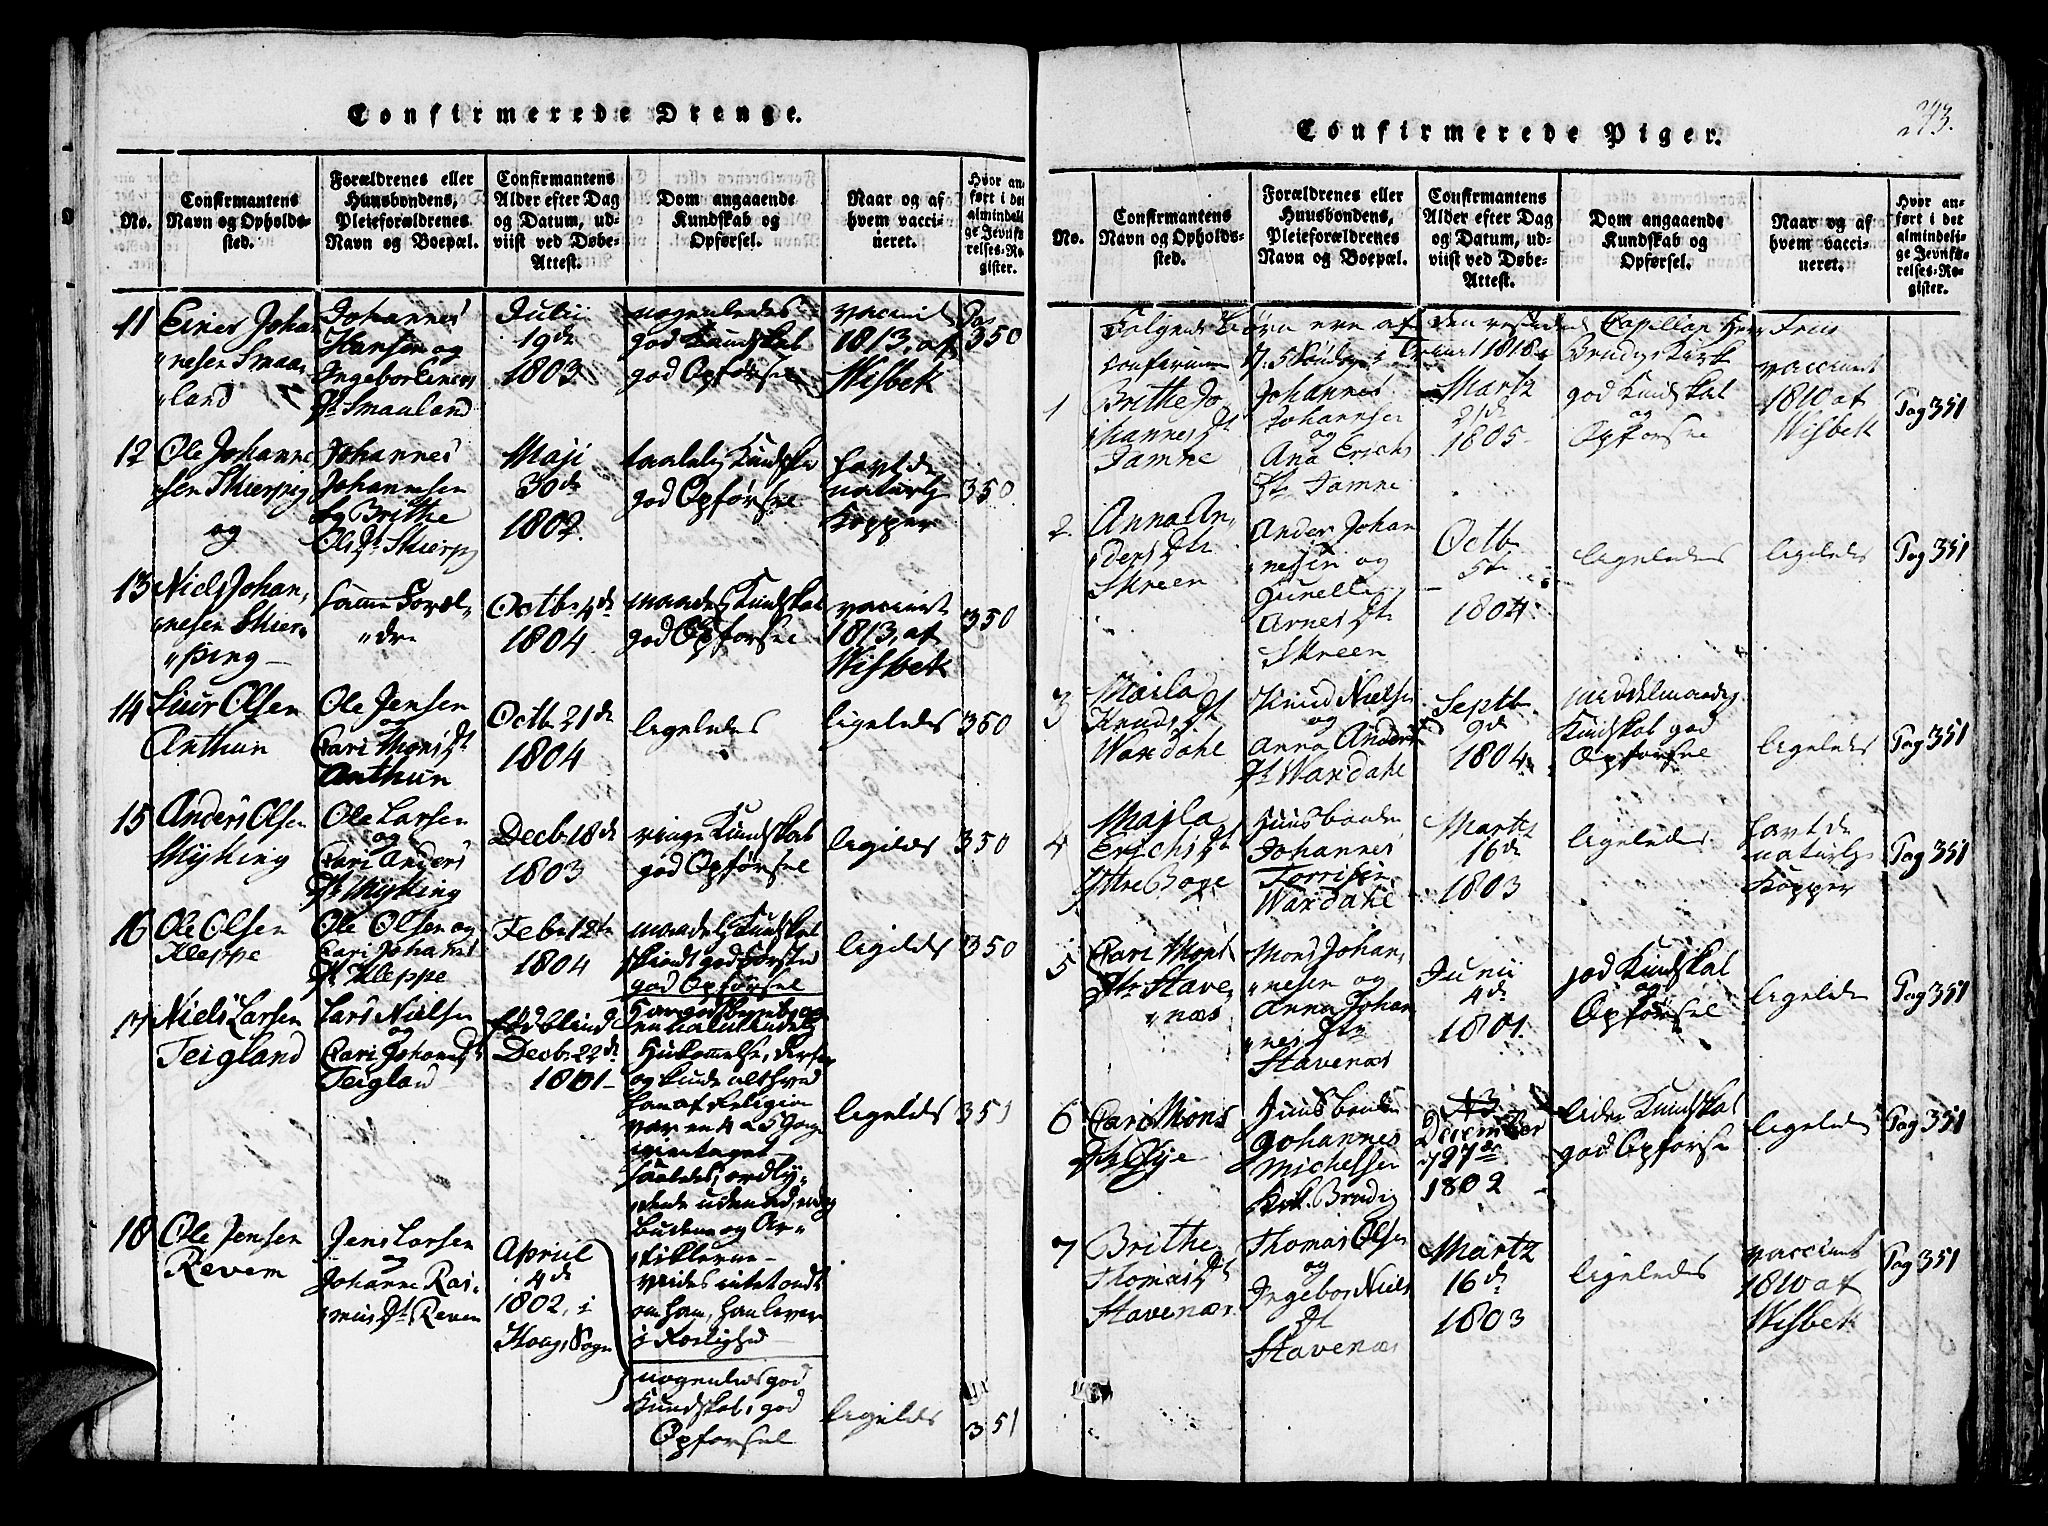 Confirmerede Drenge.
No.
Confirmantens
Navn og Opholds-
sted.
Forældrenes eller
Huusbondens,
Pleieforældrenes
Navn og Boepæl.
Confirmantens
Alder efter Dag
og Datum, ud-
viist ved Døbe-
Attest.
Dom angaaende
Kundskab og
Opførsel.
Naar og af
hvem vacci-
neret.
Hvor an-
ført i det
almindeli-
ge Jevnfø-
relses-Re-
gister.
11
Einer Johan
nesen Smaa
land
Johannes
Hansen og
Ingebor Einers
Dt Smaaland
Julii
19de
1803
nogenledes
god Kundskab
god Opførsel
vaccined
1813, af
Wisbek
Pag
350
12
Ole Johanne
sen Skierping
og
Johannes
Johannesen
og Brithe
Ols Dt Skierp
Maji
30de
1802.
taalelig Kundska
god Opførsel
havt de
naturlg
Kopper
350
13
Niels Johan,
nesen Skier,
ping
samme Foræl,
dre
Octbr 4de
1804
maadelg Kundskab
god Opførsel
vaccinert
1813, af
Wisbek
350
14
Siur Olsen
Anthun
Ole Jensen
og
Cari Mons Dt
Anthun
Octbr 21de
1804
ligeledes
ligeledes
350
15
Anders Olsen
Myking
Ole Larsen
og
Cari Anders
Dt Myking
Decbr 18de
1803
ringe Kundskab
god Opførsel
ligeledes
350
16
Ole Olsen
Kleppe
Ole Olsen og
Cari Johans
Dt Kleppe
Febr 12te
1804
maadelg Kundskab
god Opførsel
ligeledes
350
17
Niels Larsen
Teigland
Lars Nielsen
og
Cari Johannes Dt
Teigland
fød blind
Decbr 22de
1801
Hukommelse,
og kunde alt hvad
ham af Religion
var en 4 a 5 Gange
saaledes, ordly,
dende uden ad,
budene og Ar,
tiklerne
vides intet ondt
om ham, han lever
i Roelighed
ligeledes
351
18
Ole Jensen
Revem
Jens Larsen
og
Johanne Ras,
mus Dt Revem
Apriil
4de
1802, i
Hoag, Sogn
nogenledes god
Kundskab, god
Opførsel
ligeledes
351
243.
Confirmerede Piger.
No.
Confirmantens
Navn og Opholds-
sted.
Forældrenes eller
Huusbondens,
Pleieforældrenes
Navn og Boepæl.
Confirmantens
Alder efter Dag
og Datum, ud-
viist ved Døbe-
Attest.
Dom angaaende
Kundskab og
Opførsel.
Naar og af
hvem vacci-
neret.
Hvor an-
ført i det
almindeli-
ge Jevnfø-
relses-Re-
gister.
Følgende Børn ere af den residerende Capellan Herr
1818 i
1
Brithe Jo
hannes Dt
Jamne
Johannes
Johannesen
og
Ana Erichs
Dtr Jamne
Martz
21de
1805
god Kundskab
og
Opførsel
vaccinert
1810 af
Wisbek
Pag 351
2.
Anna An,
ders Dtr
Skreen
Anders Johan
nesen og
Gurelle
Arnes Dt
Skreen
Octbr
5te
1804
ligeledes
ligeledes
Pag 351
3
Maila
Knuds Dt
Wardahl
Knud Nielsen
og
Anna Anders
Dt Wardahl
Septbr
9de
1804
middelmaadig
Kundskab god
Opførsel
ligeledes
Pag 351
4
Majla
Erichs Dt
Yttre Bøge
Huusbonden
Johannes
Torrisen
Wardahl
Martz
16de
1803
ligeledes
havt de
naturlg
Kopper
Pag 351
5
Cari Mons
Dtr Stave,
næs
Mons Johan,
nesen og
Anna Johan
nes Dtr
Stavenæs
Junii
4de
1801.
god Kundskab
og
Opførsel
ligeledes
Pag 351
6
Cari Mons
Dtr Øje
Huusbonden
Johannes
Michelsen
December
27de
1802
liden Kundskab
god Opførse
ligeledes
Pag 351
7
Brithe
Thomas Dt
Stavenæs
Thomas Olsen
og
Ingebor Niels
Dt
Stavenæs
Martz
16de
1803
ligeledes
vaccinert
1810 af
Wisbek
Pag 351